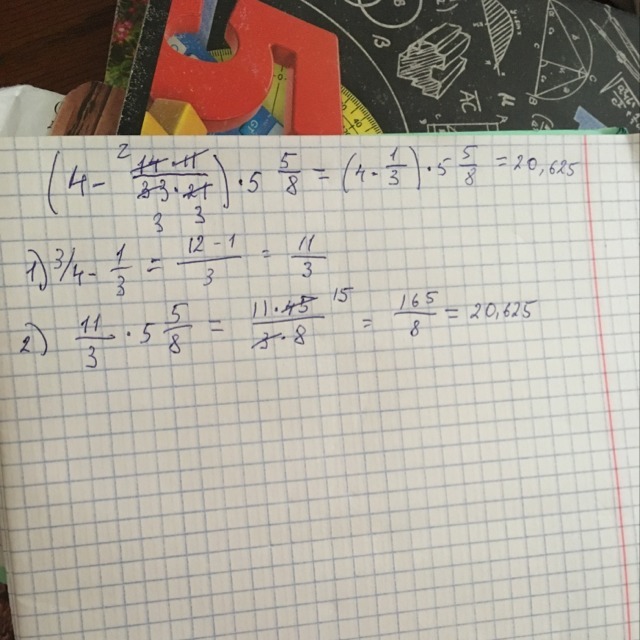 (4 - 2 14·11/33·21 3 3) · 5 5/8 = (4 - 1/3) · 5 5/8 = 20,625
1) 3/4 - 1/3 = 12-1/3 = 11/3
2) 11/3 · 5 5/8 = 11·45 15/3·8 = 165/8 = 20,625